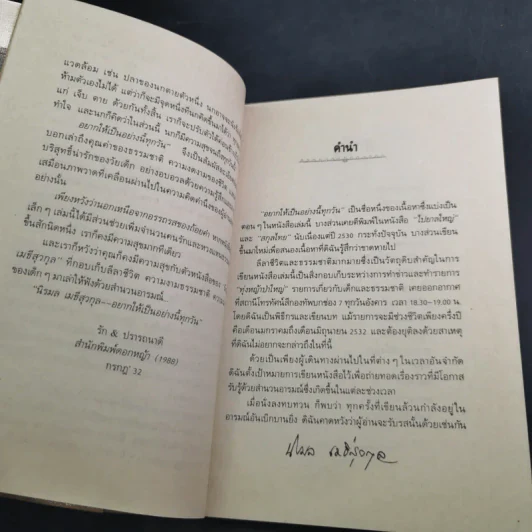 แวดล้อม เช่น ปลาของนกตายตัวหนึ่ง
ห้ามตัวเองไม่ได้ แต่ว่าก็จะมีจุดหนึ่งที่นกคิดขึ้นมาได้ว่า
แก่ เจ็บ ตาย ด้วยกันทั้งสิ้น เราก็จะปรับตัวได้
ทำใจ และนกก็คิดว่าในส่วนนี้ นกก็มีความสุข
อยากให้เป็นอย่างนี้ทุกวัน" จึงเป็น
บอกเล่าถึงคุณค่าของธรรมชาติ ความงดงามของชีวิต
บริสุทธิ์น่ารักของวัยเด็ก อย่างอบอวลด้วยความรู้สึก
เสมือนภาพวาดที่เคลื่อนผ่านไปในความคิดคำนึงของ
อย่างนั้น
เพียงหวังว่านอกเหนือจากอรรถรสของถ้อยคำ
เล็กๆ เล่มนี้ได้มีส่วนช่วยเพิ่มจำนวนคนรักและหวงแหน
ขึ้นสักนิดหนึ่ง เราก็คงมีความสุขมากทีเดียว
และเราก็หวังว่าคุณก็คงมีความสุขกับตัวหนังสือของ "นิรมล
เมธีสุวกุล" ที่กอบเก็บลีลาชีวิต ความงามธรรมชาติ
ของเด็กๆ มาเล่าให้ฟังด้วยสำนวนอารมณ์...
"นิรมล เมธีสุวกุล—อยากให้เป็นอย่างนี้ทุกวัน"
รัก & ปรารถนาดี
สำนักพิมพ์ดอกหญ้า (1988)
กรกฎ' 32
คำนำ
"อยากให้เป็นอย่างนี้ทุกวัน" เป็นชื่อหนึ่งของเนื้อหาซึ่งแบ่งเป็น
ตอนๆ ในหนังสือเล่มนี้ บางส่วนเคยตีพิมพ์ในหนังสือ "ใบยาสใหญ่"
และ "สกุลไทย" นับเนื่องแต่ปี 2530 กระทั่งปัจจุบัน บางส่วนเขียน
ขึ้นมาใหม่เพื่อเสนอเนื้อหาที่ดิฉันรู้สึกว่าขาดหายไป
ลีลาชีวิตและธรรมชาติมากมายซึ่งเป็นวัตถุดิบสำคัญในการ
เขียนหนังสือเล่มนี้เป็นสิ่งกอบเก็บระหว่างการทำข่าวและทำรายการ
"ทุ่งหญ้าป่าใหญ่" รายการเกี่ยวกับเด็กและธรรมชาติ เคยออกอากาศ
ที่สถานีโทรทัศน์สีกองทัพบกช่อง 7 ทุกวันอังคาร เวลา 18.30–19.00 น.
โดยดิฉันเป็นพิธีกรและเขียนบท แม้รายการจะมีช่วงชีวิตเพียงครึ่งปี
คือเดือนมกราคมถึงเดือนมิถุนายน 2532 และต้องยุติลงด้วยสาเหตุ
ที่ดิฉันไม่อยากจะกล่าวถึงในที่นี้
ด้วยเป็นเพียงผู้เดินทางผ่านไปในที่ต่างๆ ในเวลาอันจำกัด
ดิฉันตั้งเป้าหมายการเขียนหนังสือไว้เพื่อถ่ายทอดเรื่องราวที่มีโอกาส
รับรู้ด้วยสำนวนอารมณ์ซึ่งเกิดขึ้นในแต่ละช่วงเวลา
เมื่อนั่งลงทบทวน ก็พบว่า ทุกครั้งที่เขียนล้วนกำลังอยู่ใน
อารมณ์อันเบิกบานยิ่ง ดิฉันคาดหวังว่าผู้อ่านจะรับรสนั้นด้วยเช่นกัน
นิรมล เมธีสุวกุล